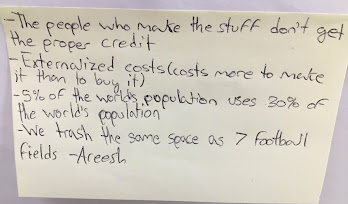 -The people who make the stuff don't get
the proper credit
-Externalized costs(costs more to make
it than to buy it)
-5% of the world's population uses 30% of
the world's population
-We trash the same space as 7 football
fields -Areesh